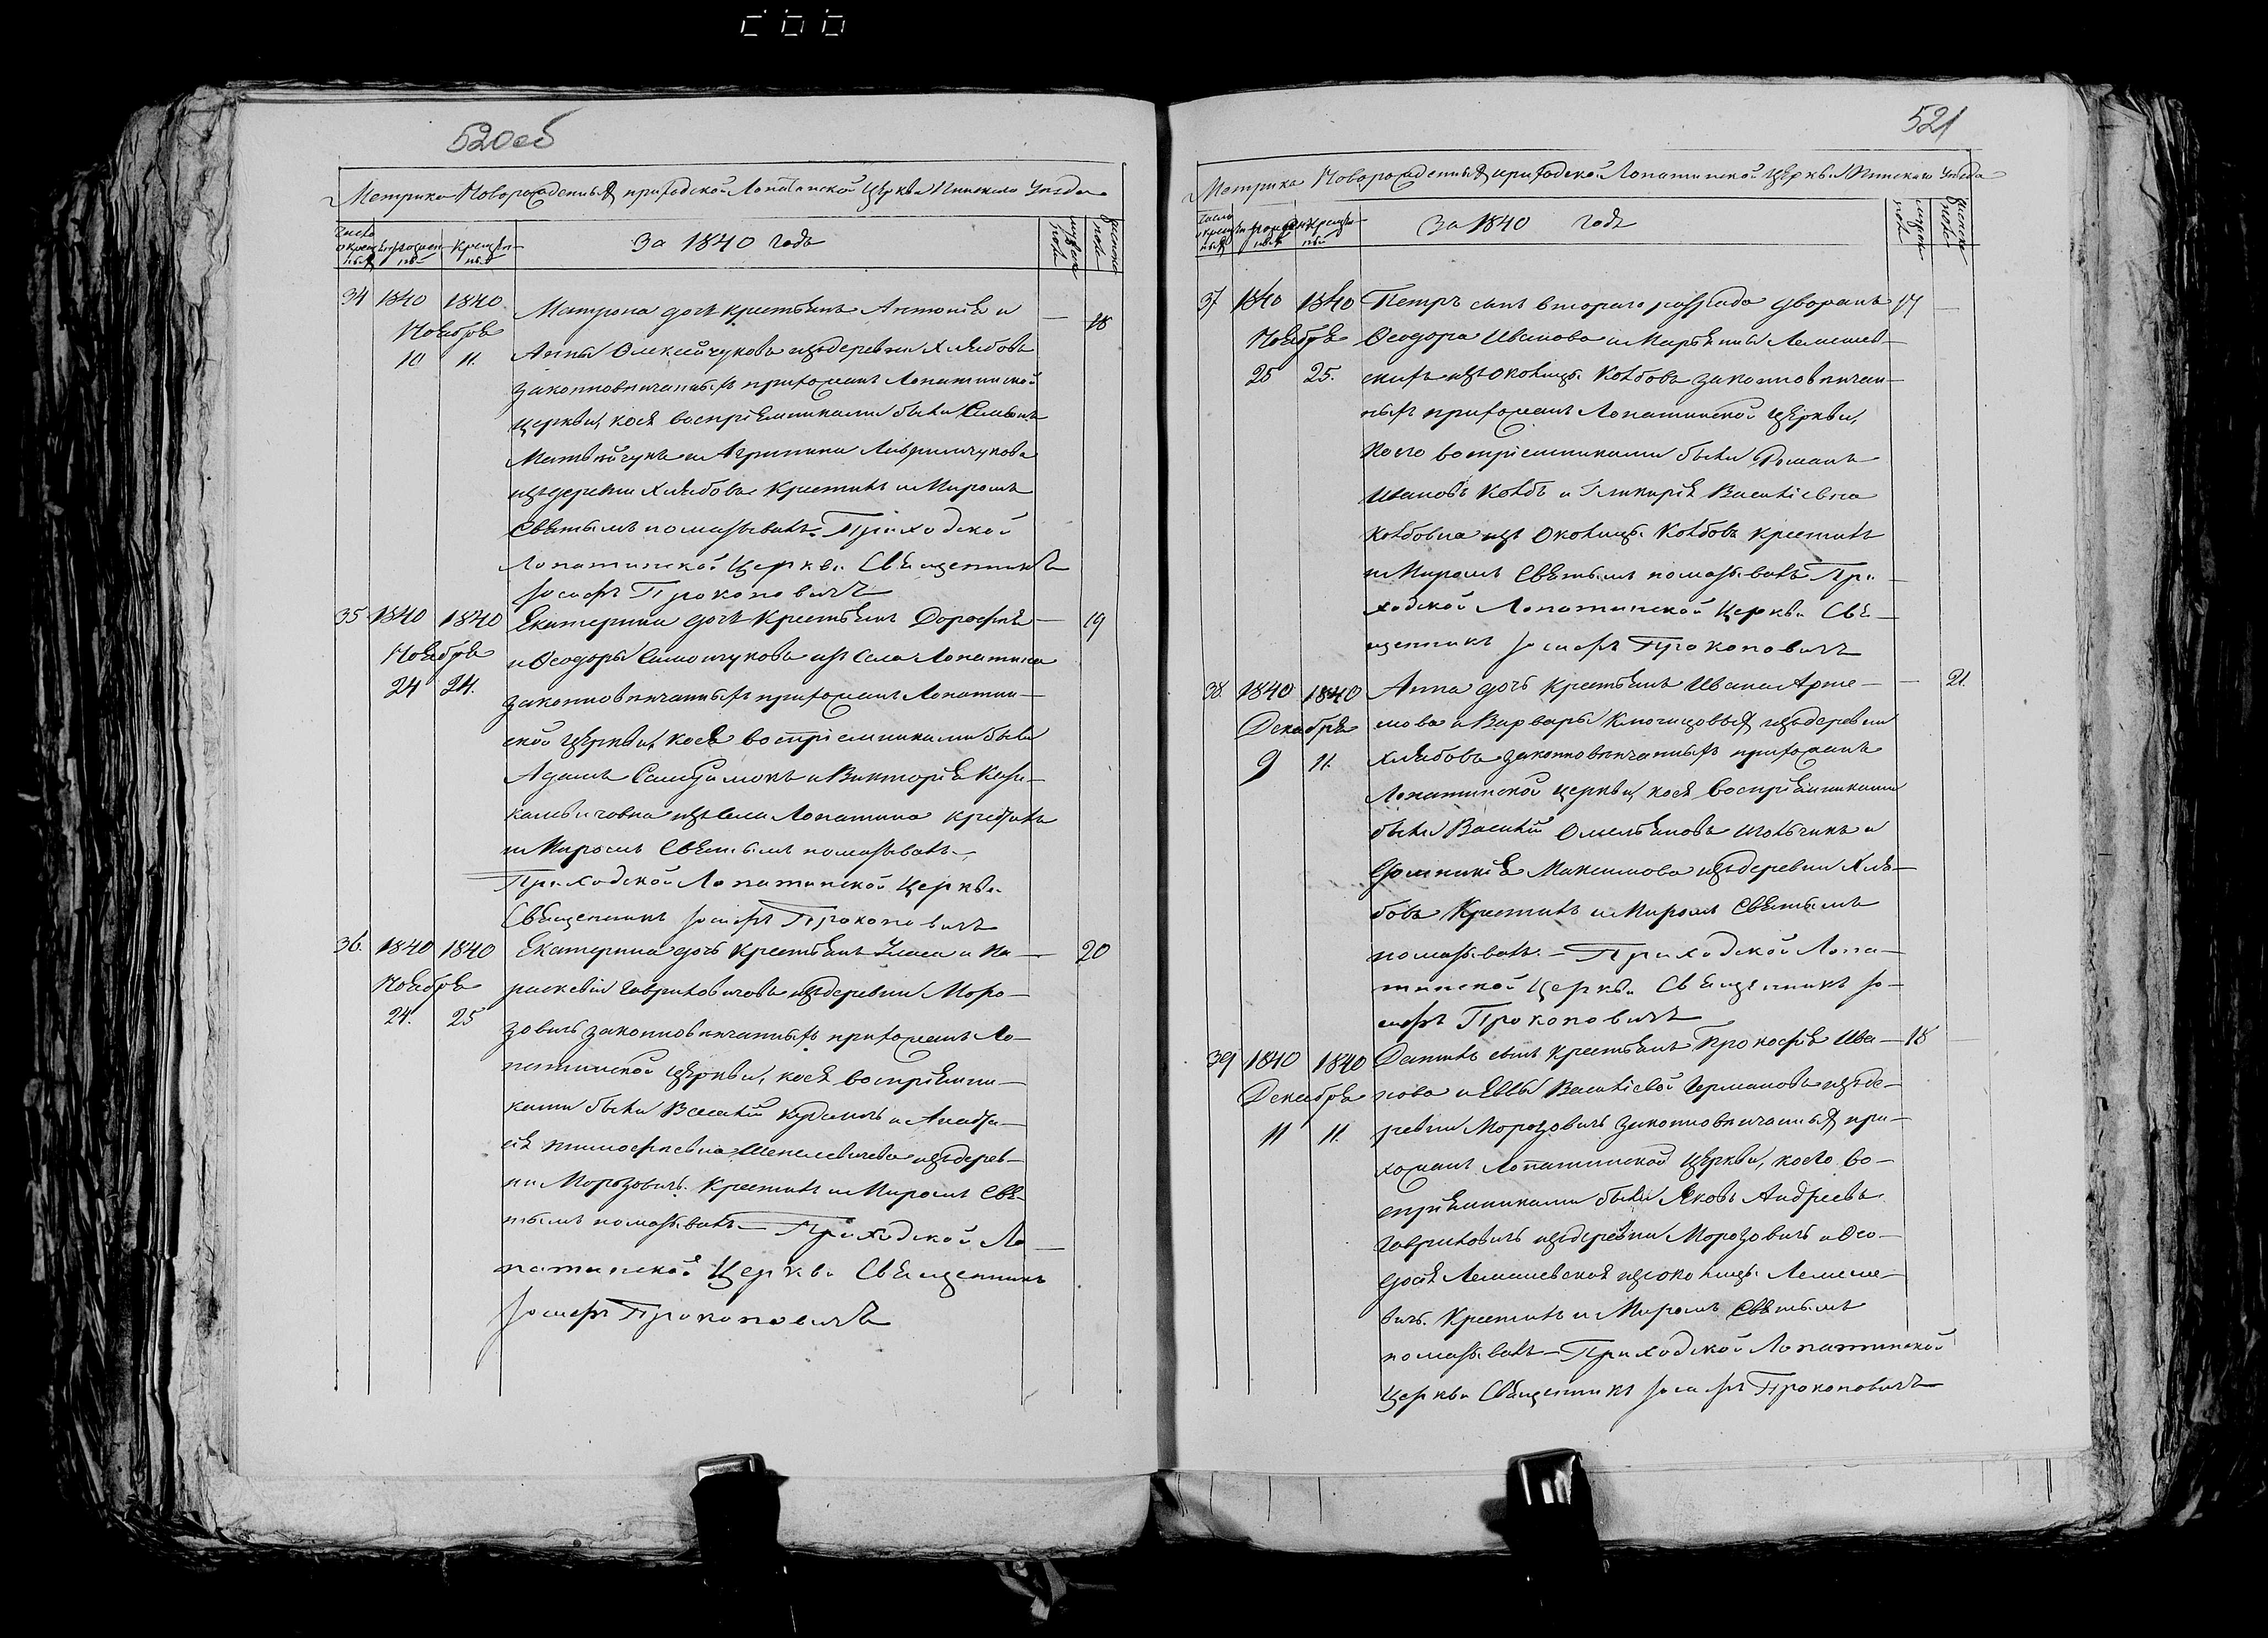 520об
Метрика Новорожденныхъ приходской Лопатинской Церкви Пинскаго Уѣзда
Число окрещенныхъ
рожденный
Крещенный
За 1840 годъ
мужеска пола
женска пола
34 1840 1840 Ноября 10 11.
Матрона дочь крестьянъ Антонія и — 18
Анны Олексійчуковъ изъ деревни Хлябовъ
законновѣнчанныхъ прихожанъ Лопатинской
церкви, коея воспріемниками были
Матвійчукъ и Агрипина
изъ деревни Хлябовъ Крестилъ и Миромъ
Святымъ помазывалъ. Приходской
Лопатинской Церкви Священникъ
Іосифъ Прокоповичъ
35 1840 1840 Ноября 24 24.
Екатерина дочь Крестьянъ Дорофея — 19
и Ѳеодоры Симончуковъ изъ Села Лопатина
законновѣнчанныхъ прихожанъ Лопатин-
ской церкви, коея воспріемниками были
Адамъ и Викторія
изъ Села Лопатина крестилъ
и Миромъ Святымъ помазывалъ.
Приходской Лопатинской Церкви
Священникъ Іосифъ Прокоповичъ
36. 1840 1840 Ноября 24. 25
Екатерина дочь Крестьянъ Уласа и Па- — 20
раскевіи Гавриловичовъ изъ деревни Моро-
зовичъ законновѣнчанныхъ прихожанъ Ло-
патинской церкви, коея воспріемни-
ками были Василій и Анаста-
сія Тимофеевна изъ дерев-
ни Морозовичъ. Крестилъ и Миромъ Свя-
тымъ помазывалъ — Приходской Ло-
патинской Церкви Священникъ
Іосифъ Прокоповичъ
521
Метрика Новорожденныхъ приходской Лопатинской Церкви Пинскаго Уѣзда
Число окрещенныхъ
рожденный
Крещенный
За 1840 годъ
мужеска пола
женска пола
37 1840 1840 Ноября 25 25.
Петръ сынъ втораго разряда дворянъ 17 —
Ѳеодора Иванова и Маріянны Лемешев-
скихъ изъ Околицы Колбовъ законновѣнчан-
ныхъ прихожанъ Лопатинской церкви,
коего воспріемниками были Романъ
Ивановъ Колбъ и Гликирія Василіевна
Колбовна изъ Околицы Колбовъ крестилъ
и Миромъ Святымъ помазывалъ При-
ходской Лопатинской Церкви Свя-
щенникъ Іосифъ Прокоповичъ
38. 1840 1840 Декабря 9 11.
Анна дочь Крестьянъ Ивана Арте- — 21.
мова и Варвары изъ деревни
Хлябовъ законновѣнчанныхъ прихожанъ
Лопатинской церкви, коея воспріемниками
были Василій Омельяновъ и
Доминикія Максимова изъ деревни Хля-
бовъ Крестилъ и Миромъ Святымъ
помазывалъ. — Приходской Лопа-
тинской Церкви Священникъ Іо-
сифъ Прокоповичъ
39 1840 1840 Декабря 11 11.
Даніилъ сынъ Крестьянъ Прокофія Ива- 18
нова и Евы Василіевой Германовъ изъ де-
ревни Морозовичъ законновѣнчанныхъ при-
хожанъ Лопатинской церкви, коего во-
спріемниками были Яковъ Андреевъ
Гавриловичъ изъ деревни Морозовичъ и Ѳео-
досія Лемешевская изъ околицы Лемеше-
вичъ. Крестилъ и Миромъ Святымъ
помазывалъ — Приходской Лопатинской
Церкви Священникъ Іосифъ Прокоповичъ